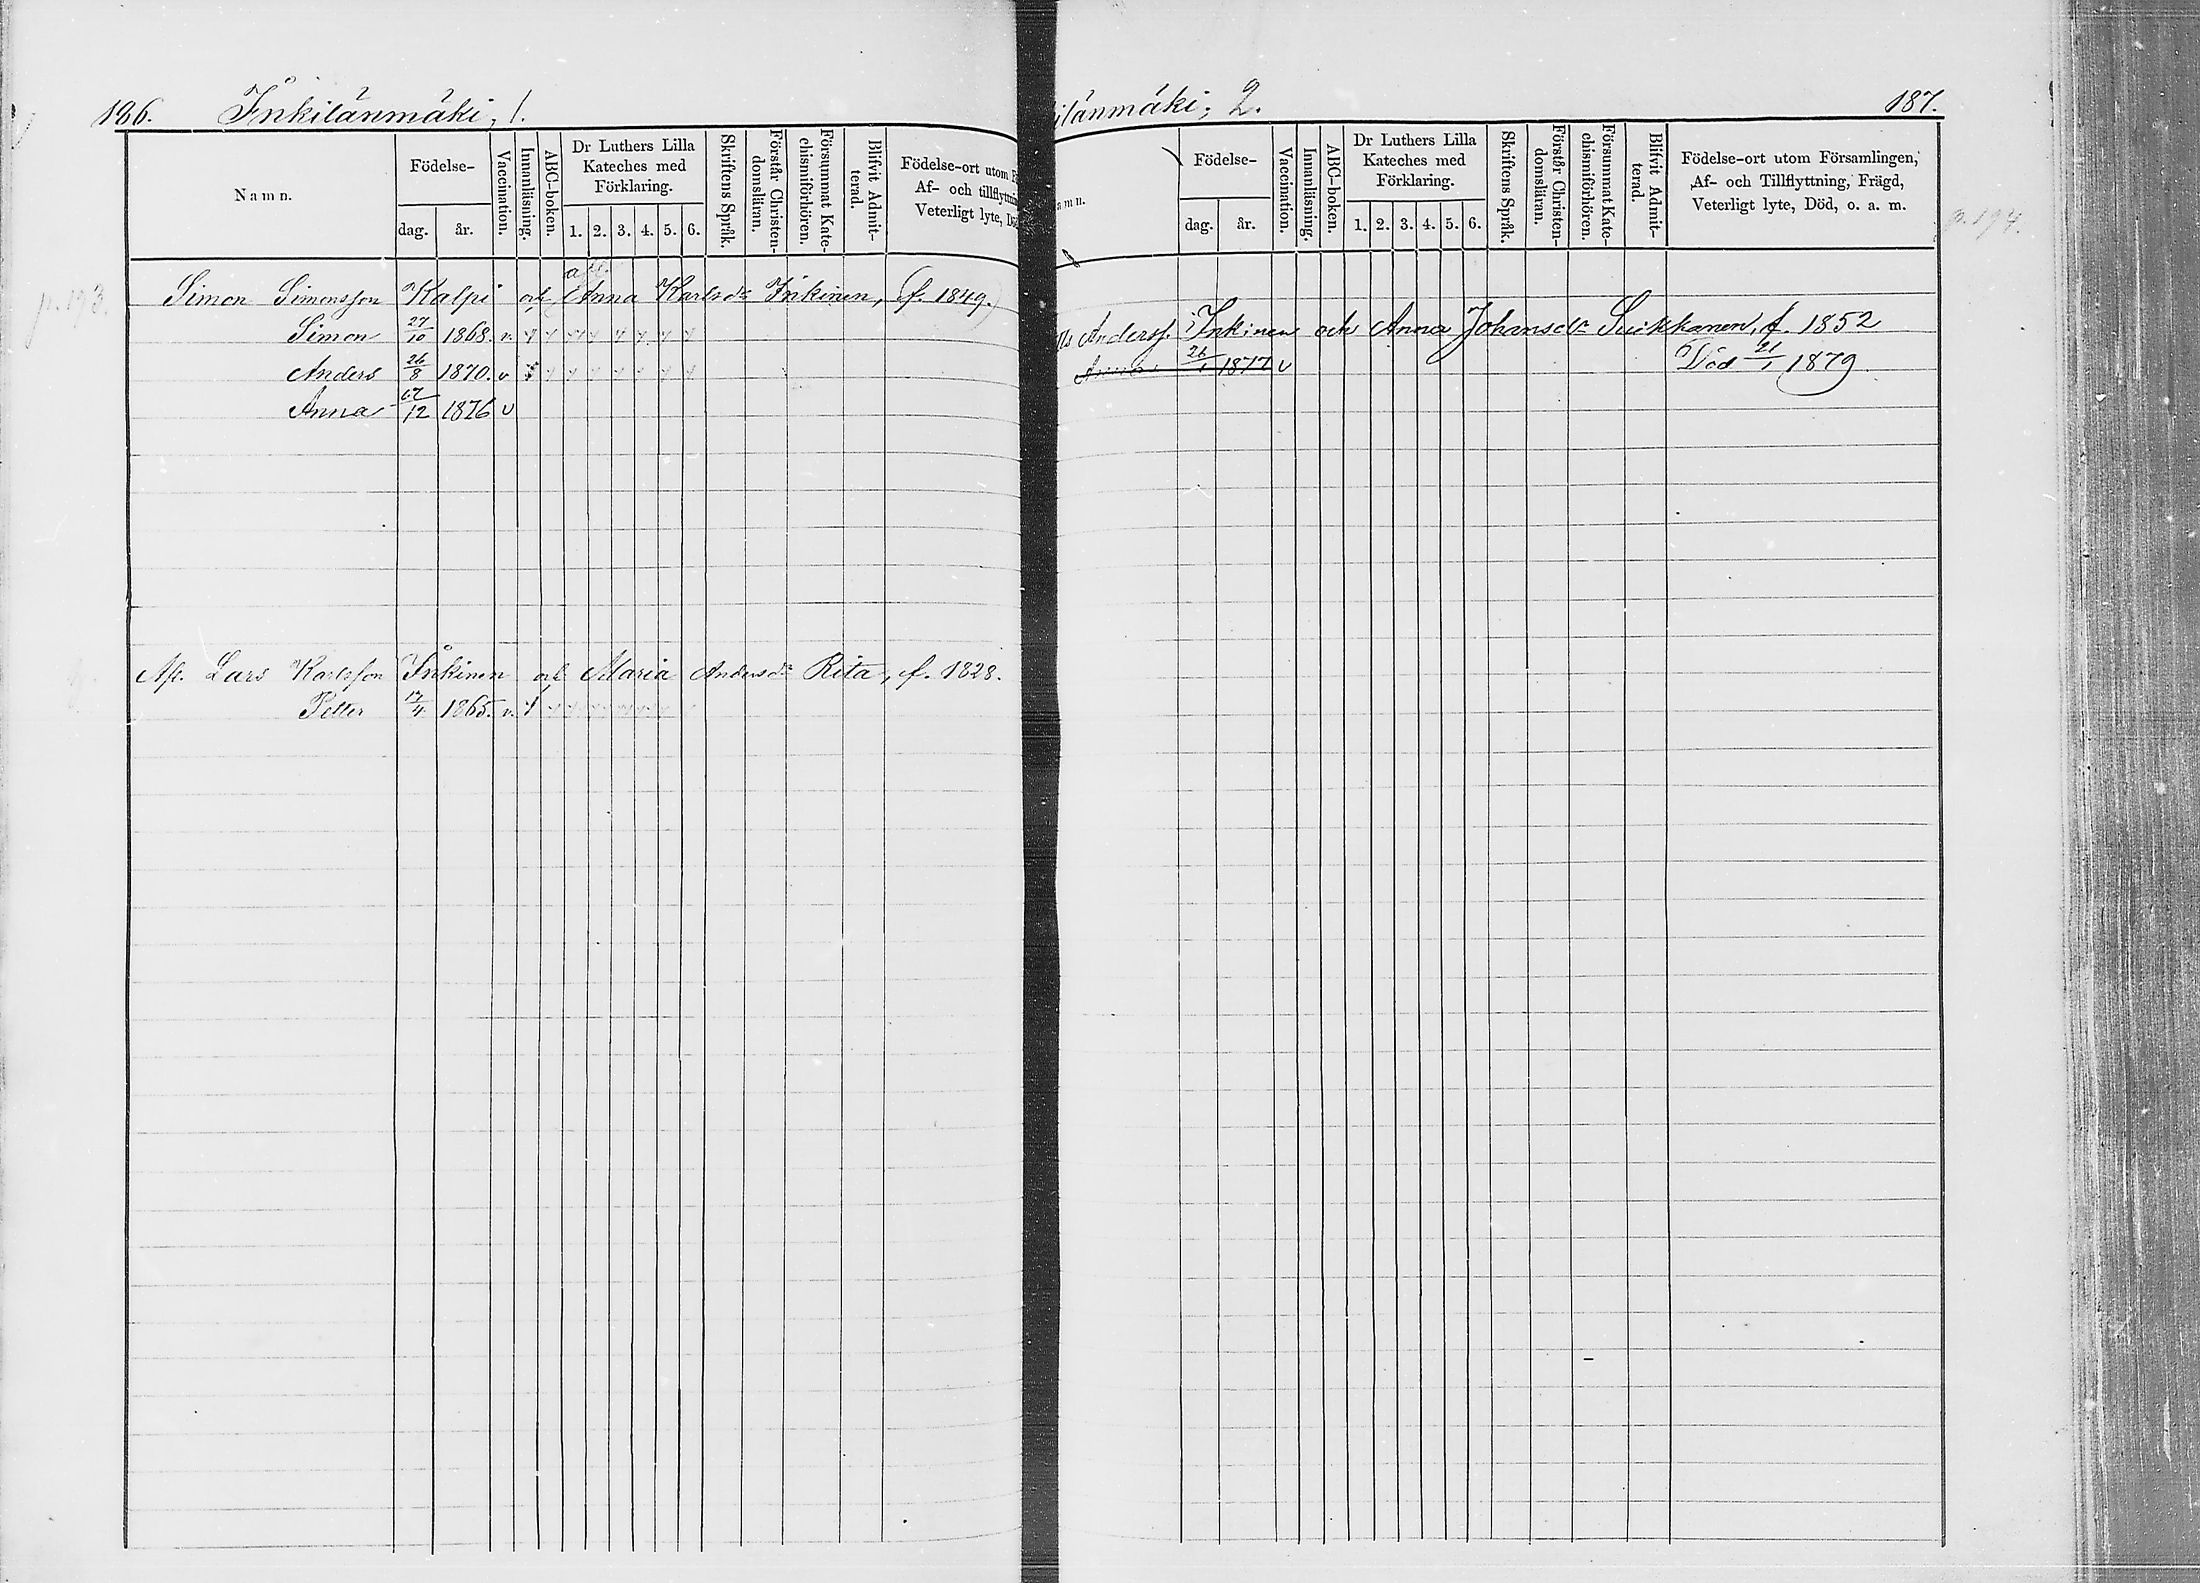 186. Inkilänmäki, 1.
Namn.
Födelse-
dag. år.
Vaccination.
Innanläsning.
ABC-boken.
Dr Luthers Lilla Kateches med Förklaring.
1. 2. 3. 4. 5. 6.
Skriftens Språk.
Förstår Christen-domsläran.
Försummat Kate-chismiförhören.
Blifvit Admit-terad.
Födelse-ort utom F
Af- och tillflyttnin
Veterligt lyte, Död
p. 193.
Simon Simonsson Kalpi och Anna Karlsdr Inkinen, f. 1849.
Simon 27/10 1868. v.
Anders 26/8 1870. v
Anna 12 1876 v
Afl. Lars Karlsson Inkinen och Maria Andersdr Rita, f. 1828.
Petter 17/4 1865. v.
ilänmäki, 2. 187.
amn.
Födelse-
dag. år.
Vaccination.
Innanläsning.
ABC-boken.
Dr Luthers Lilla Kateches med Förklaring.
1. 2. 3. 4. 5. 6.
Skriftens Språk.
Förstår Christen-domsläran.
Försummat Kate-chismiförhören.
Blifvit Admit-terad.
Födelse-ort utom Församlingen,
Af- och Tillflyttning, Frägd,
Veterligt lyte, Död, o. a. m.
p. 194.
Anderss. Inkinen och Anna Johansdr Suikkanen, f. 1852
26/1 1877 v Död 21/1 1879